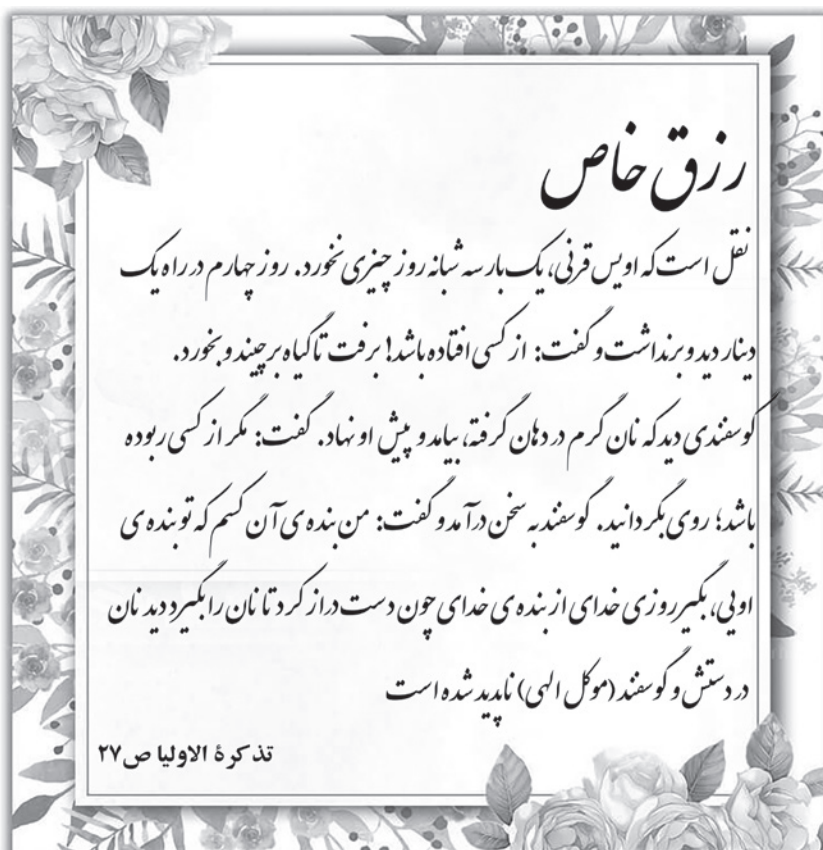 رزق خاص
نقل است که اویس قرنی، یک بار سه شبانه روز چیزی نخورد. روز چهارم در راه یک
دینار دید و برنداشت و گفت: از کسی افتاده باشد! برفت تا گیاه برچیند و بخورد.
گوسفندی دید که نان گرم در دهان گرفته، بیامد و پیش او نهاد. گفت: مگر از کسی ربوده
باشد؛ روی بگردانید. گوسفند به سخن درآمد و گفت: من بنده ی آن کسم که تو بنده ی
اویی، بگیر روزی خدای از بنده ی خدای چون دست دراز کرد تا نان را بگیرد دید نان
در دستش و گوسفند (موکل الهی) ناپدید شده است
تذکرة الاولیا ص۲۷